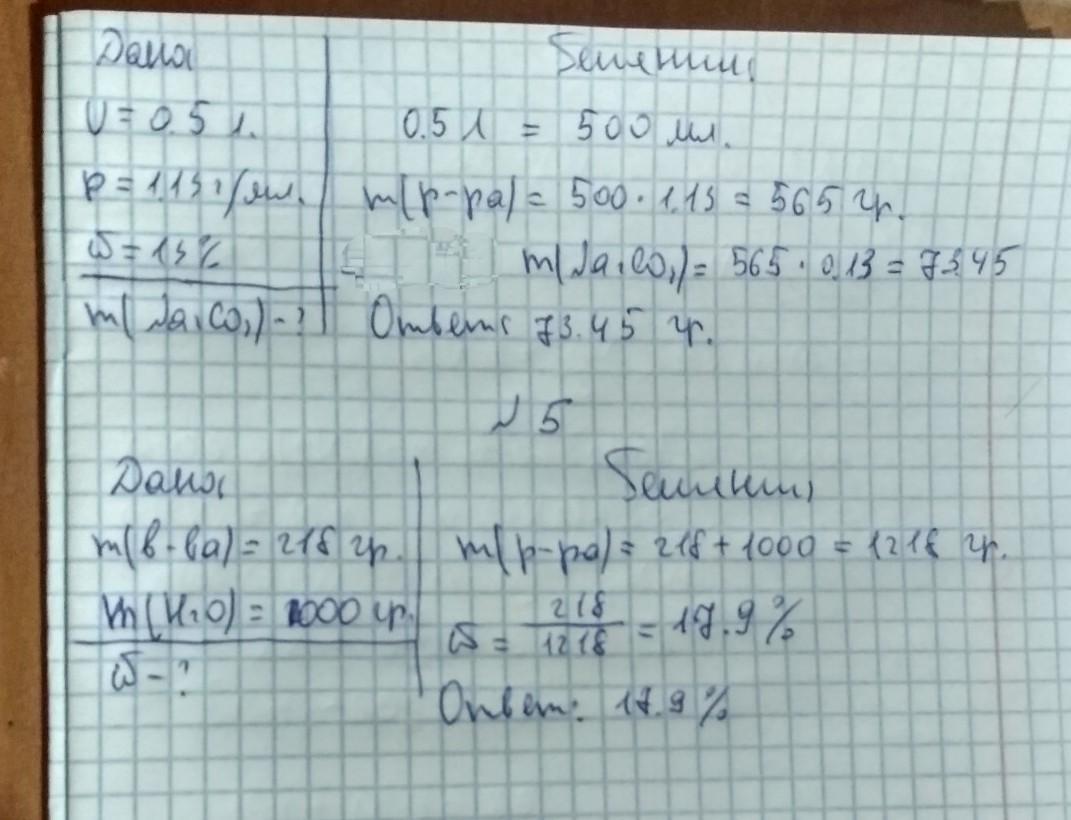 Дано Решение
V = 0.5 л. 0.5 л = 500 мл.
р = 1.13 г/мл. m(р-ра) = 500 · 1.13 = 565 гр.
ω = 13% m(Na₂CO₃) = 565 · 0.13 = 73.45
m(Na₂CO₃) - ? Ответ: 73.45 гр.
№ 5
Дано Решение
m(в-ва) = 218 гр. m(р-ра) = 218 + 1000 = 1218 гр.
m(H₂O) = 1000 гр. ω = 218/1218 = 17.9 %
ω - ? Ответ: 17.9 %